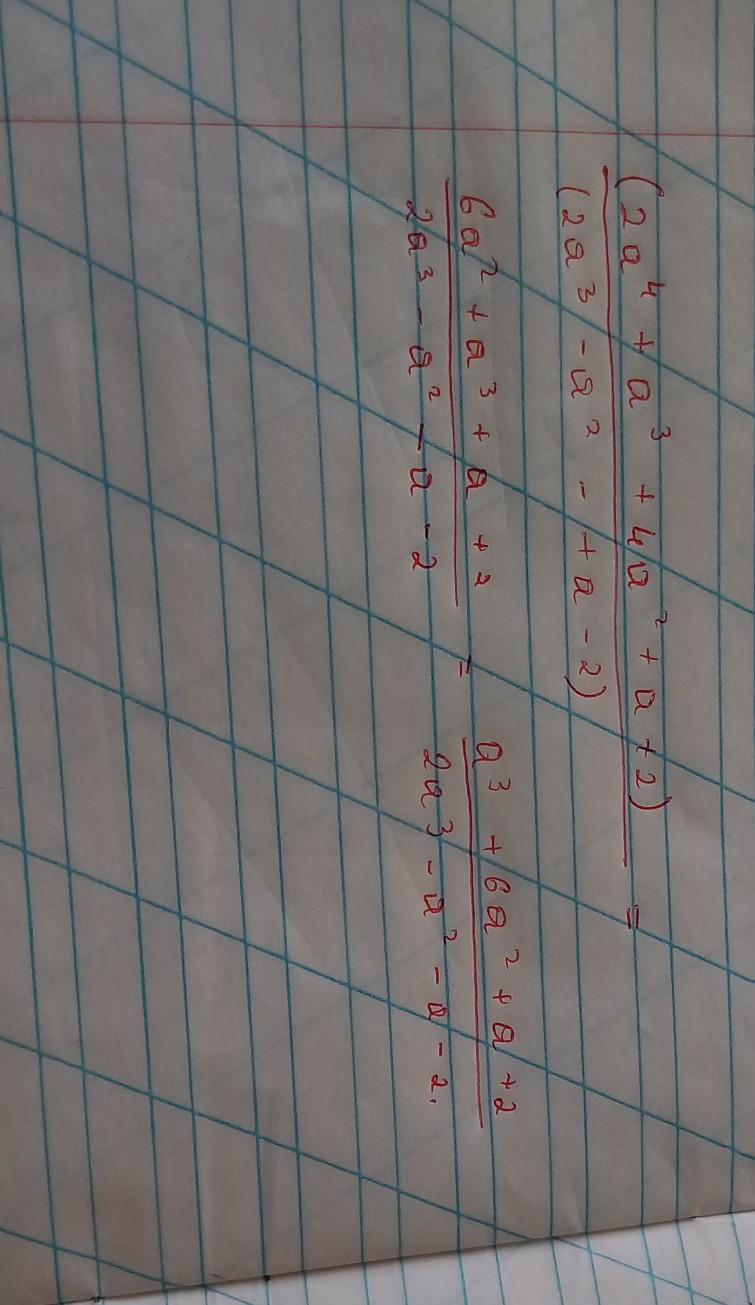 (2a⁴ + a³ + 4a² + a + 2) / (2a³ - a² - + a - 2) =
(6a² + a³ + a + 2) / (2a³ - a² - a - 2) = (a³ + 6a² + a + 2) / (2a³ - a² - a - 2.